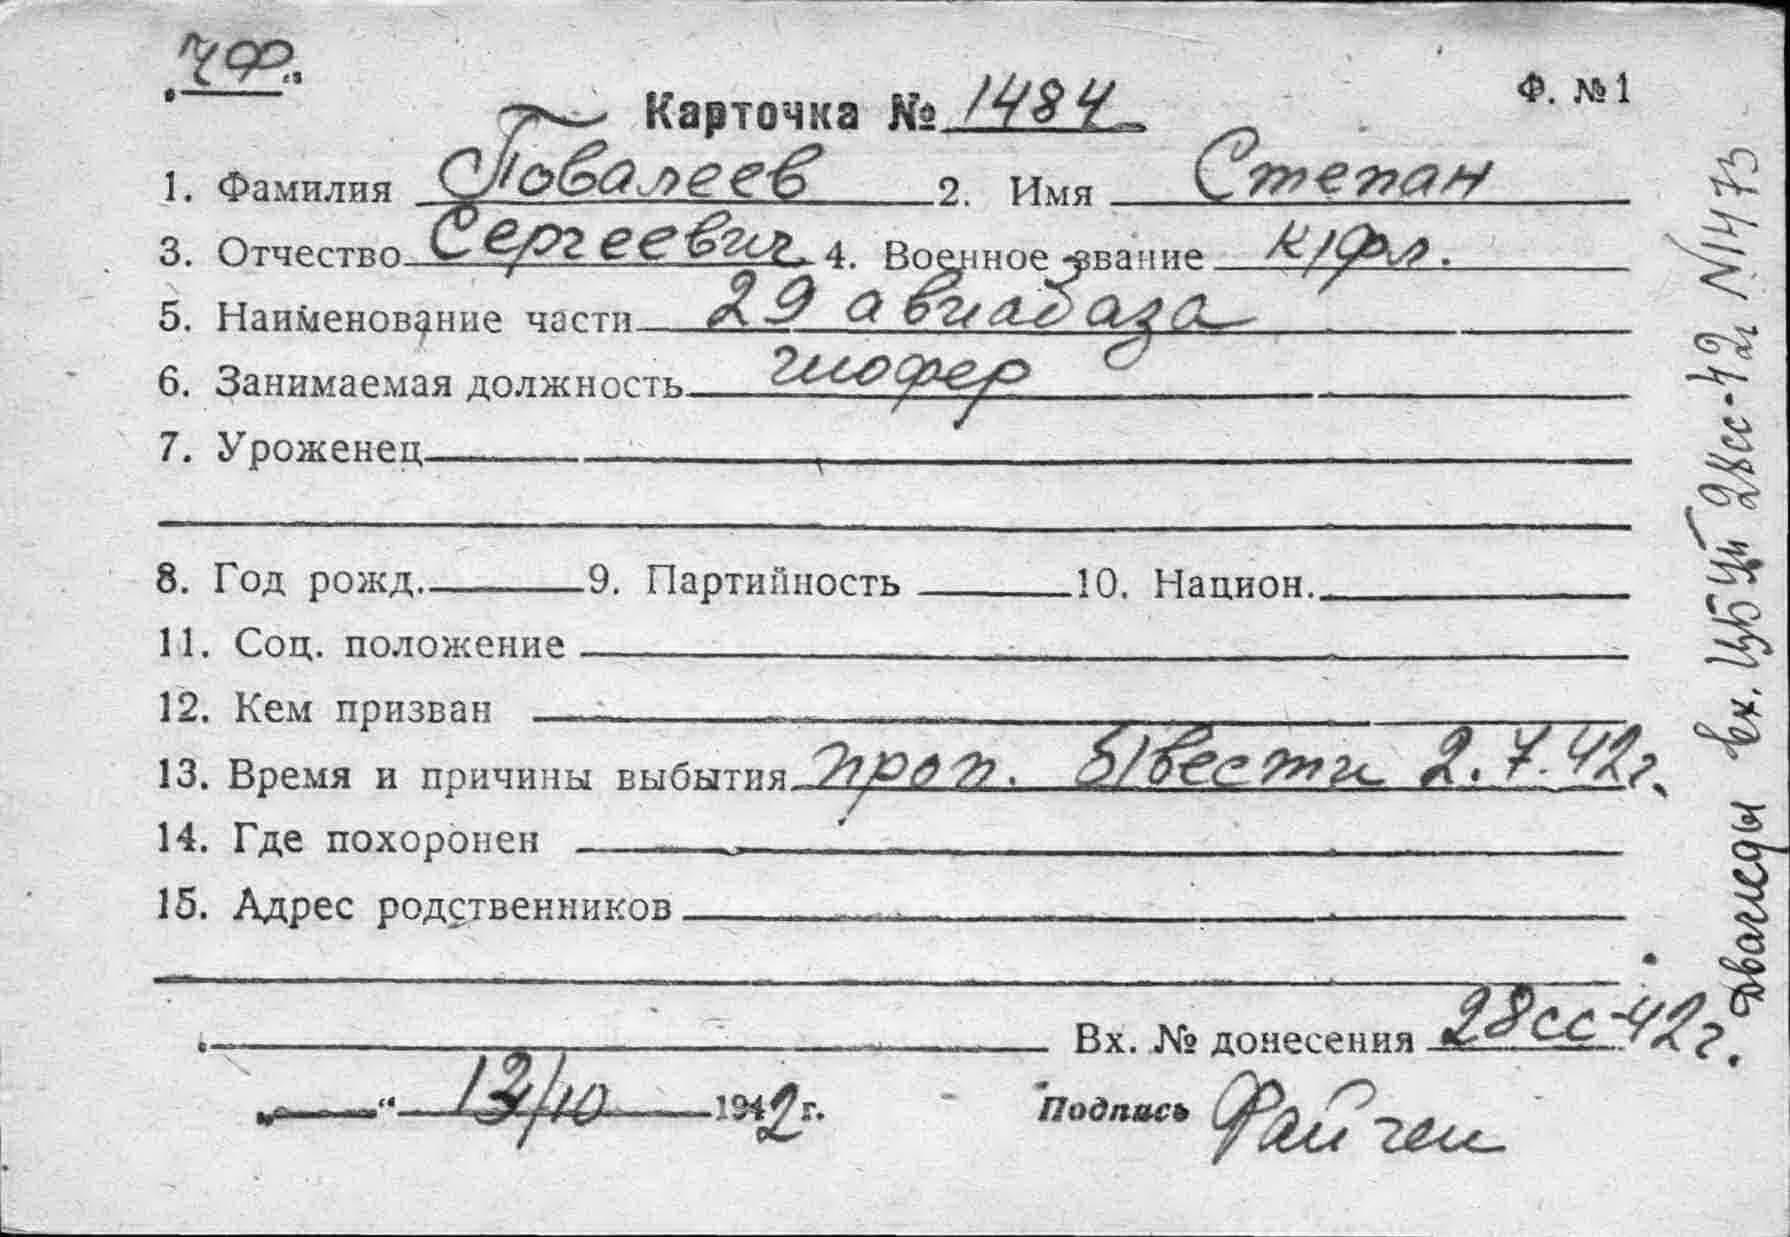 ЧФ.
Ф. №1
Карточка № 1484
1. Фамилия Повалеев 2. Имя Степан
3. Отчество Сергеевич 4. Военное звание к/фл.
5. Наименование части 29 авиабаза
6. Занимаемая должность шофер
7. Уроженец
8. Год рожд. 9. Партийность 10. Национ.
11. Соц. положение
12. Кем призван
13. Время и причины выбытия проп. б/вести 2.7.42г.
14. Где похоронен
15. Адрес родственников
Вх. № донесения 28сс-42г.
„ “ /10 1942г. Подпись
Дважды вх. 28сс-42г №1473